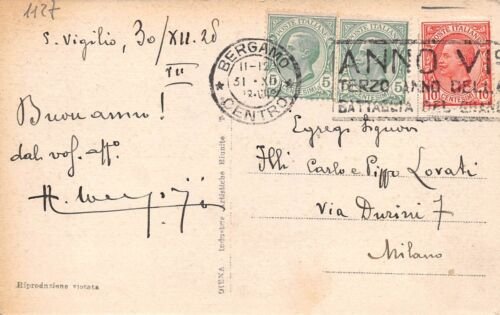 1127
S. Vigilio, 30/XII.28
III
Buon anno!
dal vos. aff.º
Riproduzione vietata
DIENA Industrie Artistiche Riunite
BERGAMO
11-12
31 XII
CENTRO
POSTE ITALIANE
5
POSTE ITALIANE
5
POSTE ITALIANE
10 CENTESIMI 10
ANNO VI
TERZO ANNO DELLA
BATTAGLIA DEL GRANO
Egregi Signori
Illi Carlo e Pippo Lovati
Via Durini 7
Milano